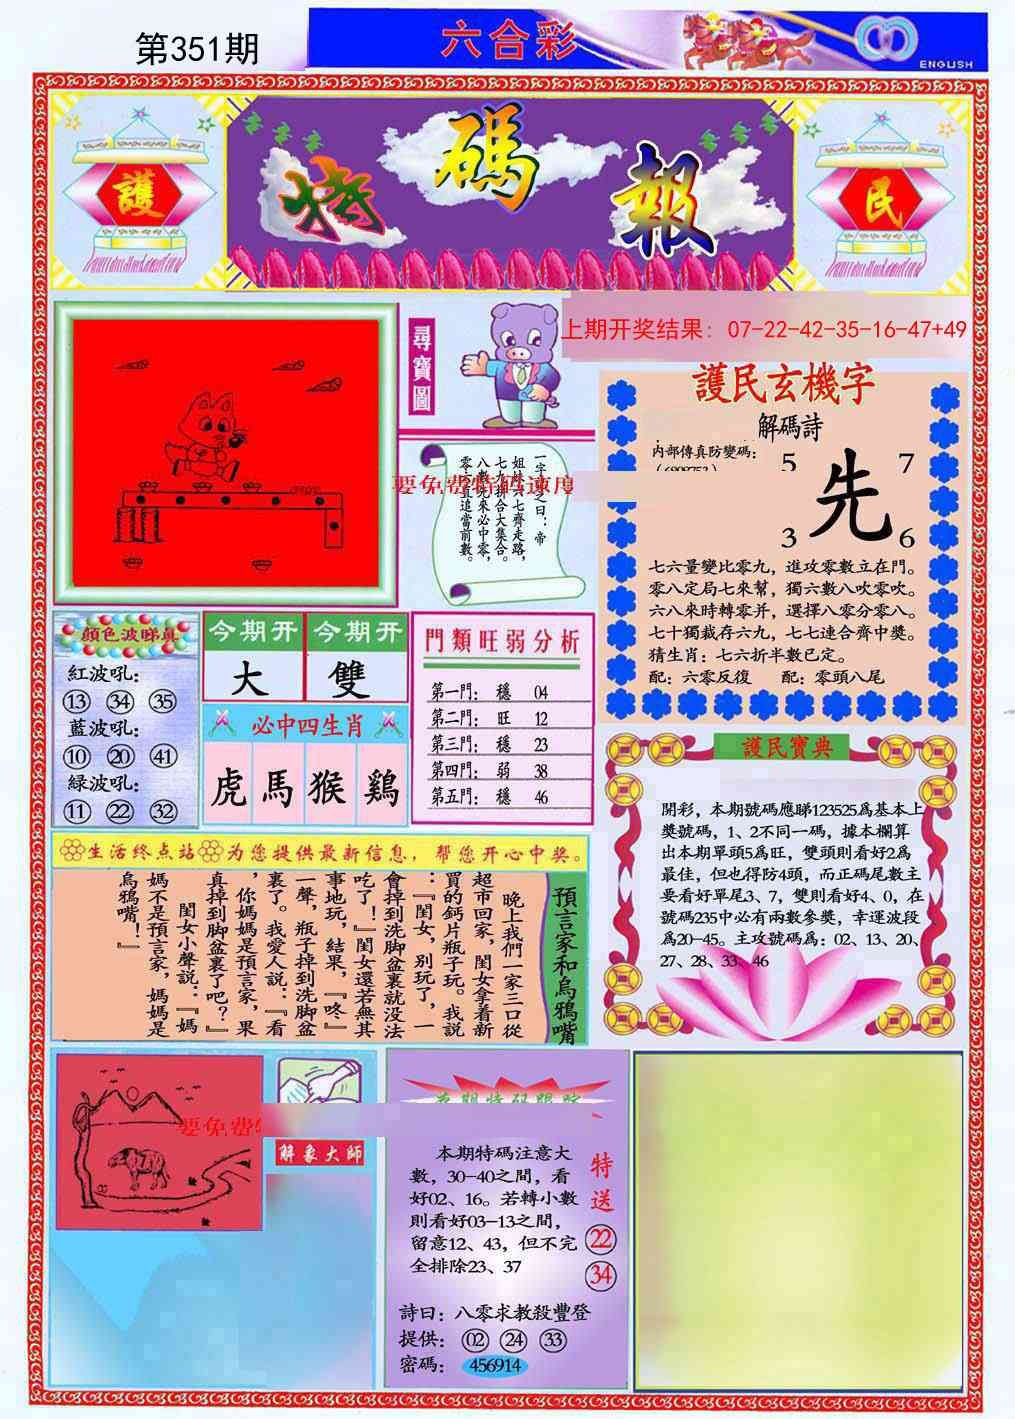 第351期
六合彩
ENGLISH
護
特碼報
民
尋寶圖
上期开奖结果：07-22-42-35-16-47+49
一字記之曰：帝
七九拼合大集合。
八數先來必中零，
要免费特码速度
護民玄機字
解碼詩
内部傳真防變碼：
5 7
先
3 6
七六量變比零九，進攻零數立在門。
零八定局七來幫，獨六數八吹零吹。
六八來時轉零并，選擇八零分零八。
七十獨裁存六九，七七連合齊中獎。
猜生肖：七六折半數已定。
配：六零反復 配：零頭八尾
顔色波睇真
紅波吼：
13 34 35
藍波吼：
10 20 41
緑波吼：
11 22 32
今期开 今期开
大 雙
必中四生肖
虎 馬 猴 鷄
門類旺弱分析
第一門： 穩 04
第二門： 旺 12
第三門： 穩 23
第四門： 弱 38
第五門： 穩 46
護民寶典
開彩，本期號碼應睇123525爲基本上
獎號碼，1、2不同一碼，據本欄算
出本期單頭5爲旺，雙頭則看好2爲
最佳，但也得防4頭，而正碼尾數主
要看好單尾3、7，雙則看好4、0，在
號碼235中必有兩數參獎，幸運波段
爲20-45。主攻號碼爲：02、13、20、
27、28、33、46
生活终点站 为您提供最新信息，帮您开心中奖。
預言家和烏鴉嘴
晚上我們一家三口從
超市回家，閨女拿着新
買的鈣片瓶子玩。我説
：『閨女，别玩了，一
會掉到洗脚盆裏就没法
吃了！』閨女還若無其
事地玩，結果，『咚』
一聲，瓶子掉到洗脚盆
裏了。我愛人説：『看
，你媽媽是預言家，果
真掉到脚盆裏了吧？』
閨女小聲説：『媽
媽不是預言家，媽媽是
烏鴉嘴！』
要免费
解象大師
本期特碼注意大
數，30-40之間，看
好02、16。若轉小數
則看好03-13之間，
留意12、43，但不完
全排除23、37
特送
22
34
詩曰：八零求教殺豐登
提供： 02 24 33
密碼： 456914